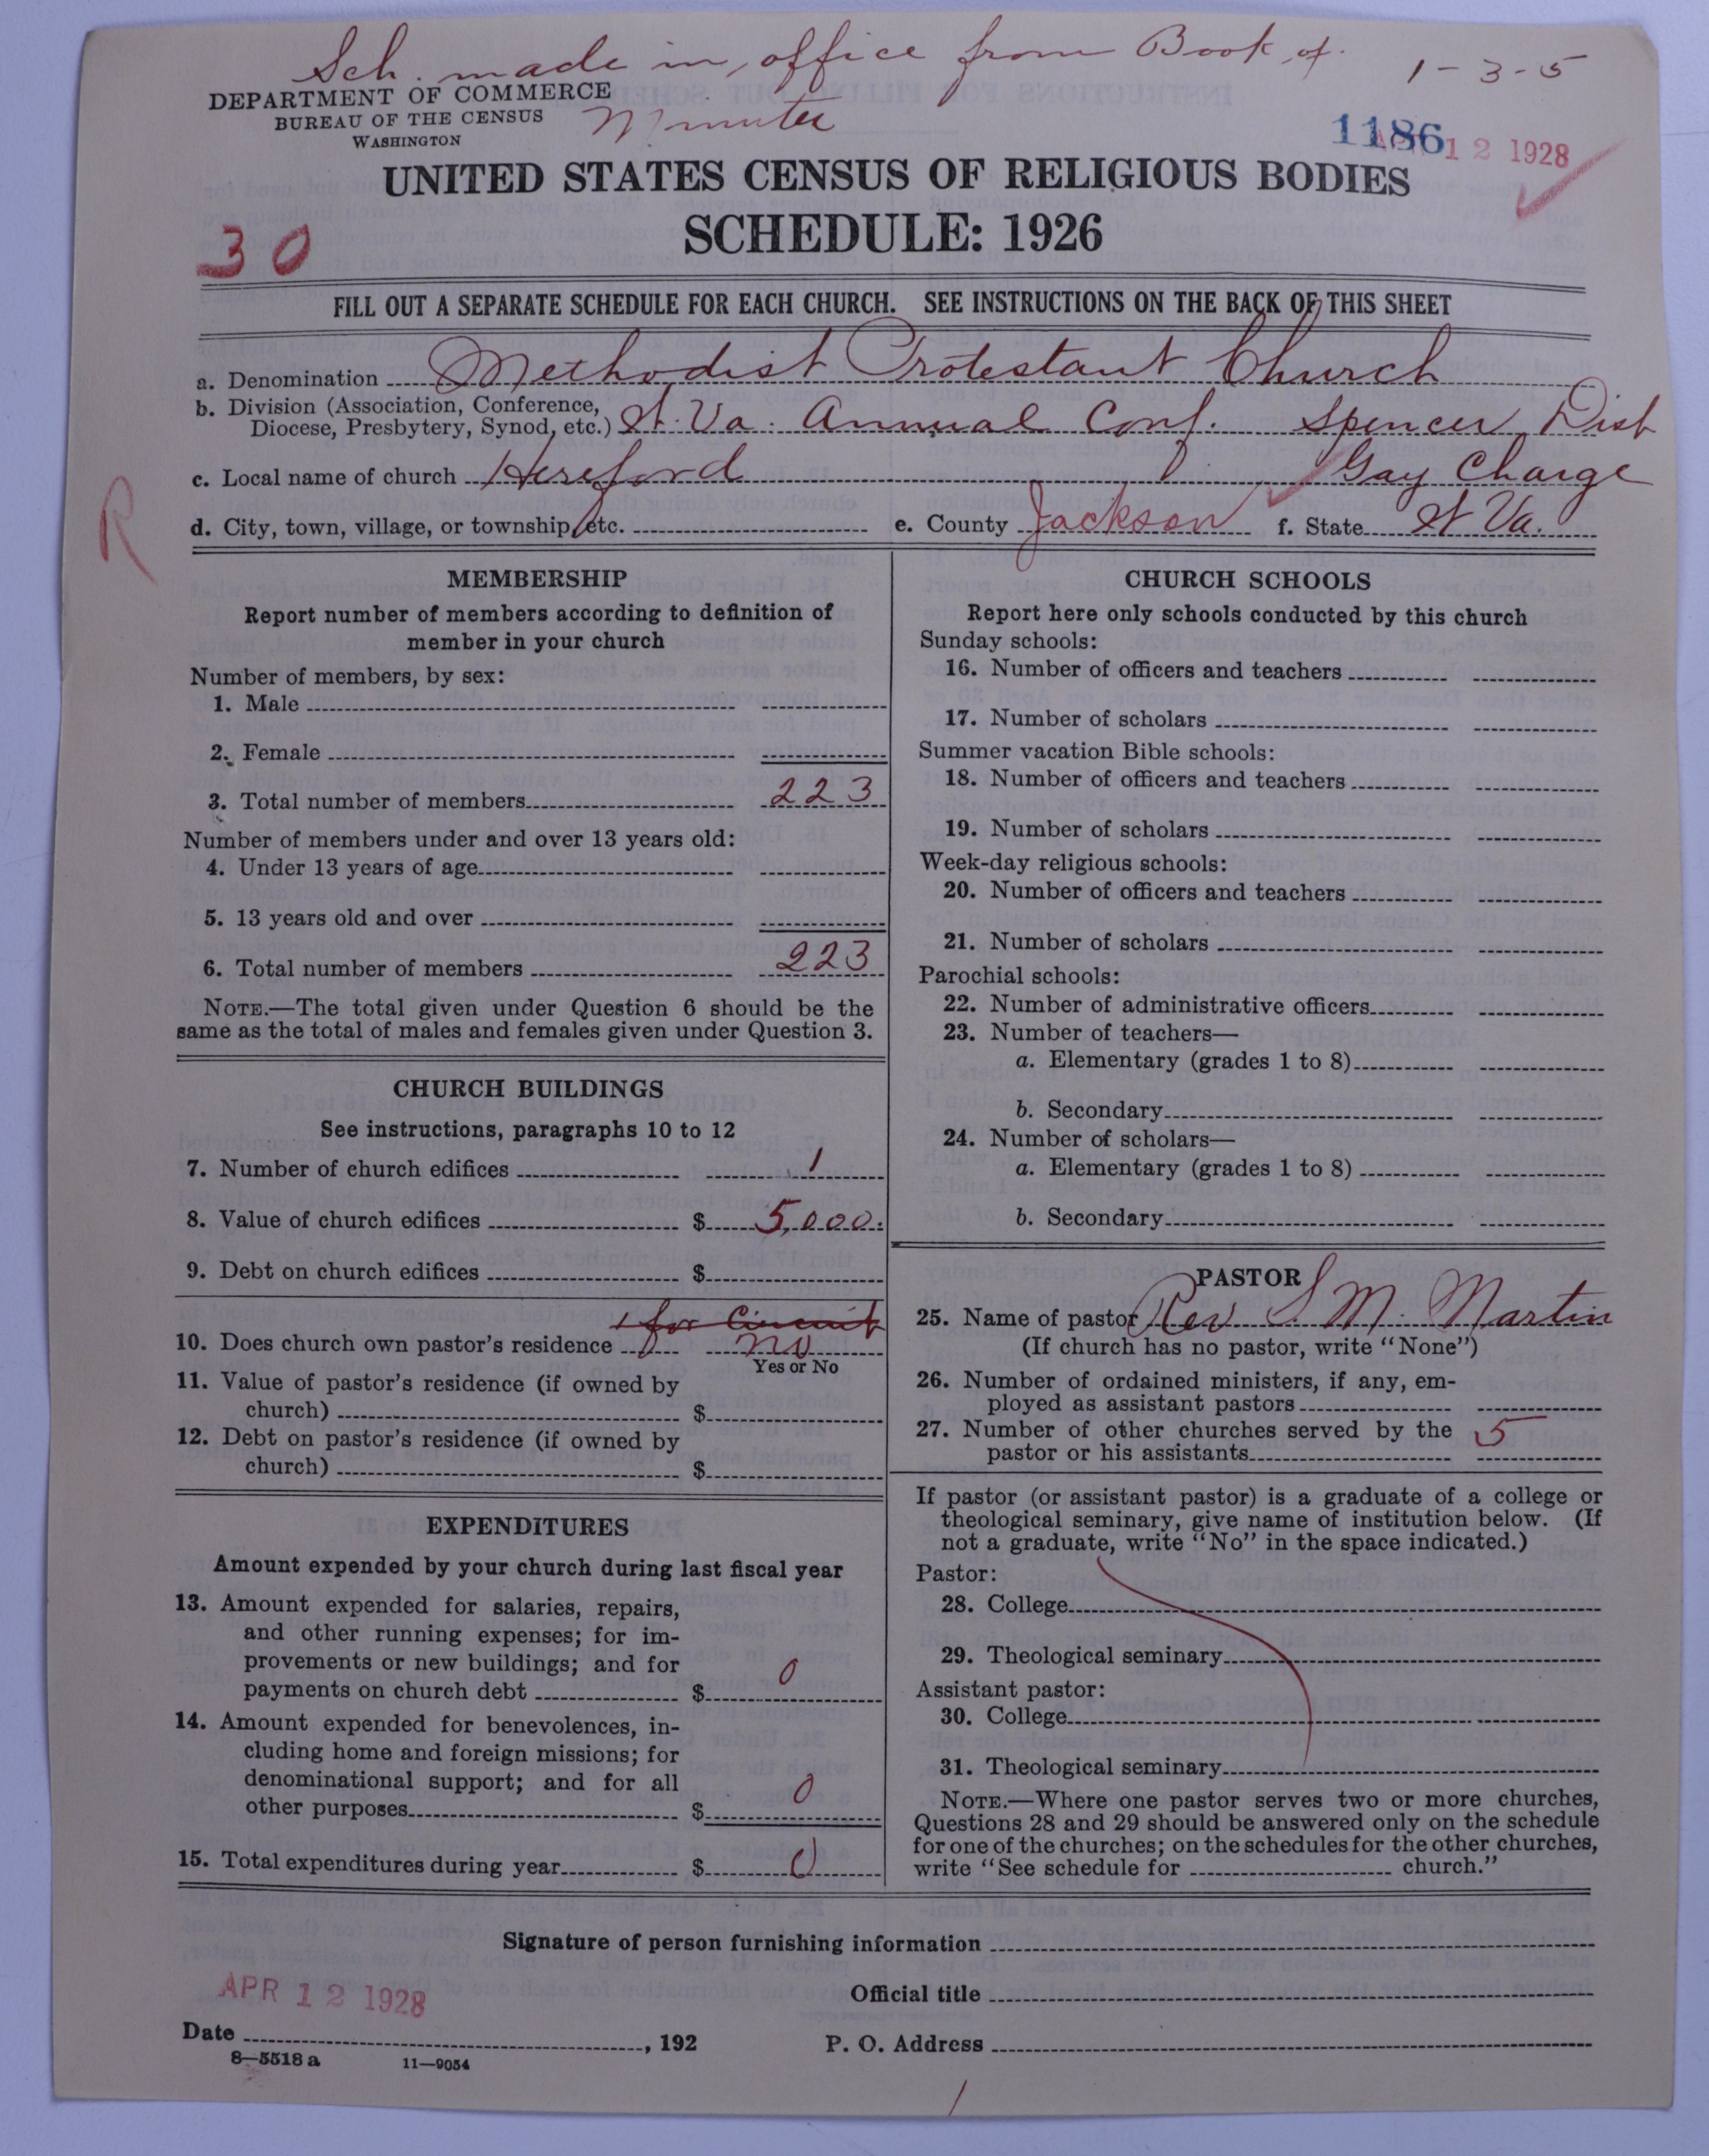 Sch. made in office from Book of 1-3-5
DEPARTMENT OF COMMERCE
BUREAU OF THE CENSUS Minutes
WASHINGTON
1186 12 1928
UNITED STATES CENSUS OF RELIGIOUS BODIES
SCHEDULE: 1926
30
FILL OUT A SEPARATE SCHEDULE FOR EACH CHURCH. SEE INSTRUCTIONS ON THE BACK OF THIS SHEET
a. Denomination Methodist Protestant Church
b. Division (Association, Conference,
Diocese, Presbytery, Synod, etc.) W. Va. Annual Conf. Spencer Dist
c. Local name of church Hereford Gay Charge
R
d. City, town, village, or township, etc. e. County Jackson f. State W Va.
MEMBERSHIP
Report number of members according to definition of
member in your church
Number of members, by sex:
1. Male
2. Female
3. Total number of members 223
Number of members under and over 13 years old:
4. Under 13 years of age
5. 13 years old and over
6. Total number of members 223
NOTE.—The total given under Question 6 should be the
same as the total of males and females given under Question 3.
CHURCH BUILDINGS
See instructions, paragraphs 10 to 12
7. Number of church edifices 1
8. Value of church edifices $ 5,000.
9. Debt on church edifices $
1 for Circuit
10. Does church own pastor's residence no
Yes or No
11. Value of pastor's residence (if owned by
church) $
12. Debt on pastor's residence (if owned by
church) $
EXPENDITURES
Amount expended by your church during last fiscal year
13. Amount expended for salaries, repairs,
and other running expenses; for im-
provements or new buildings; and for
payments on church debt $ 0
14. Amount expended for benevolences, in-
cluding home and foreign missions; for
denominational support; and for all
other purposes $ 0
15. Total expenditures during year $ 0
CHURCH SCHOOLS
Report here only schools conducted by this church
Sunday schools:
16. Number of officers and teachers
17. Number of scholars
Summer vacation Bible schools:
18. Number of officers and teachers
19. Number of scholars
Week-day religious schools:
20. Number of officers and teachers
21. Number of scholars
Parochial schools:
22. Number of administrative officers
23. Number of teachers—
a. Elementary (grades 1 to 8)
b. Secondary
24. Number of scholars—
a. Elementary (grades 1 to 8)
b. Secondary
PASTOR
25. Name of pastor Rev S. M. Martin
(If church has no pastor, write "None")
26. Number of ordained ministers, if any, em-
ployed as assistant pastors
27. Number of other churches served by the 5
pastor or his assistants
If pastor (or assistant pastor) is a graduate of a college or
theological seminary, give name of institution below. (If
not a graduate, write "No" in the space indicated.)
Pastor:
28. College
29. Theological seminary
Assistant pastor:
30. College
31. Theological seminary
NOTE.—Where one pastor serves two or more churches,
Questions 28 and 29 should be answered only on the schedule
for one of the churches; on the schedules for the other churches,
write "See schedule for church."
Signature of person furnishing information
APR 12 1928
Official title
Date , 192
P. O. Address
8—5518 a 11—9054